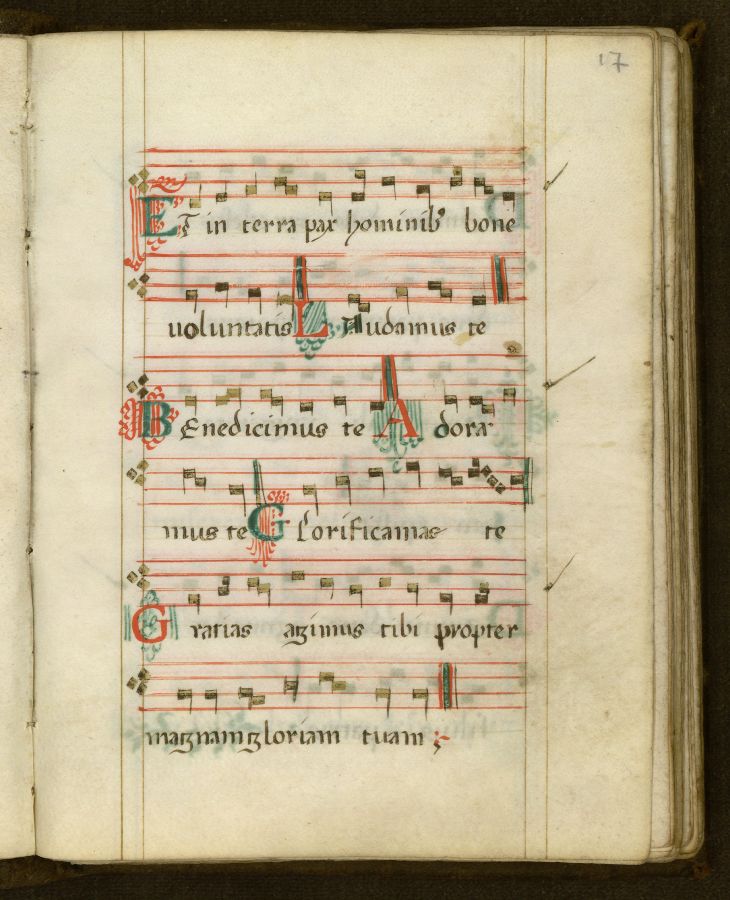 17
ET in terra pax hominib' bone
uoluntatis LAudamus te
BEnedicimus te Adora
mus te Glorificamas te
Gratias agimus tibi propter
magnam gloriam tuam